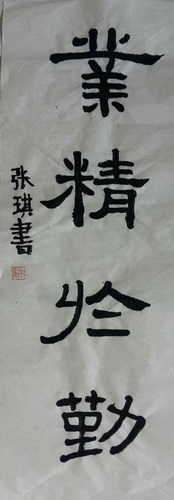 業精於勤
张琪書